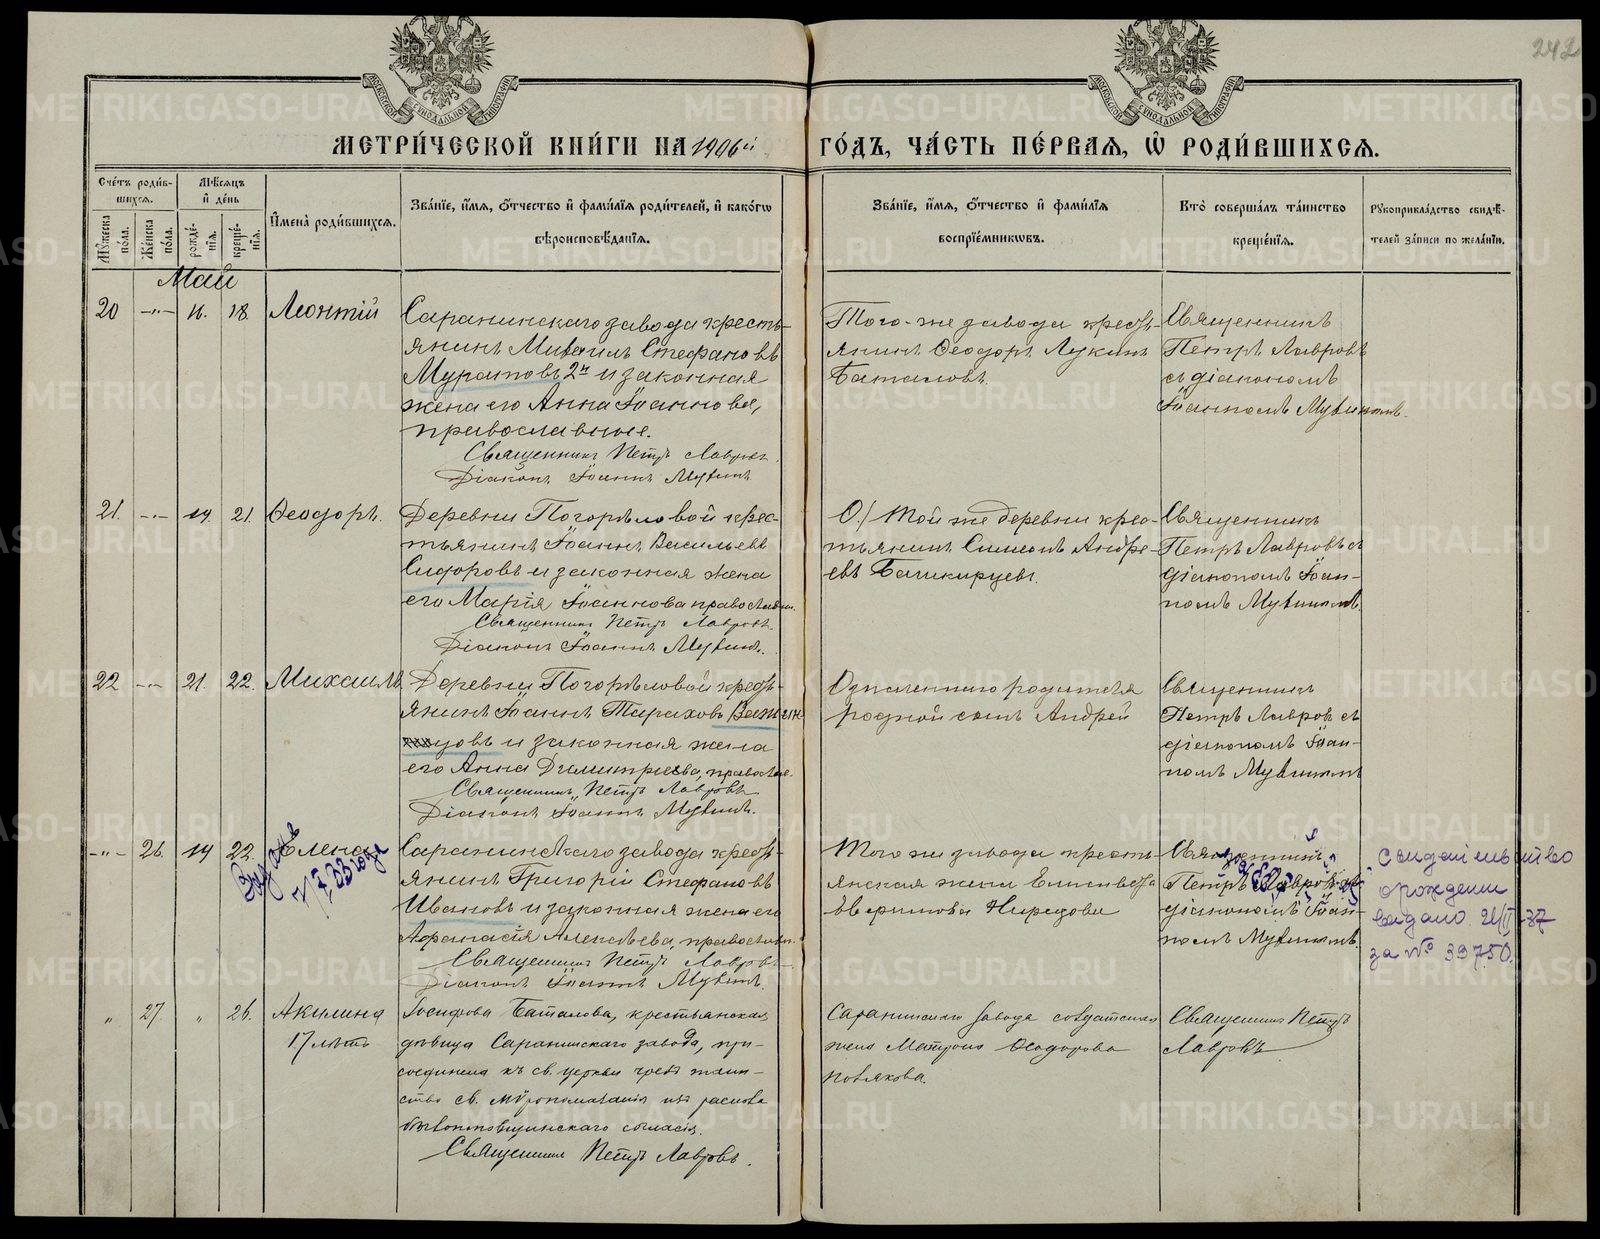 242
МЕТРИ́ЧЕСКОЙ КНИ́ГИ НА 1906й ГО́ДЪ, ЧА́СТЬ ПЕ́РВАѦ, Ѡ҆ РОДИ́ВШИХСѦ.
Сче́тъ роди́в-
шихсѧ.
Мꙋ́жеска по́ла.
Же́нска по́ла.
Мѣ́сѧцъ и҆ де́нь
рожде́-
нїѧ.
креще́-
нїѧ.
И҆мена̀ роди́вшихсѧ.
Зва́нїе, и҆́мѧ, ѻ҆́тчество и҆ фами́лїѧ роди́телей, и҆ како́гѡ
вѣроисповѣ́данїѧ.
Зва́нїе, и҆́мѧ, ѻ҆́тчество и҆ фами́лїѧ
воспрїе́мникѡвъ.
Кто̀ соверша́лъ та́инство
креще́нїѧ.
Рꙋкоприкла́дство свидѣ́-
телей за́писи по жела́нїю.
Май
20 -"- 16. 18. Леонтій
Саранинскаго завода кресть-
янинъ Михаилъ Стефановъ
Муратовъ 2й и законная
жена его Анна Іоаннова,
православные.
Священникъ Петръ Лавровъ.
Діаконъ Іоаннъ Мухинъ.
Того-же завода кресть-
янинъ Ѳеодоръ Лукинъ
Баталовъ.
Священникъ
Петръ Лавровъ
съ діакономъ
Іоанномъ Мухинымъ.
21. -"- 19. 21. Ѳеодоръ.
Деревни Погорѣловой крес-
тьянинъ Іоаннъ Васильевъ
Сидоровъ и законная жена
его Марія Іоаннова правосл
Священникъ Петръ Лавровъ.
Діаконъ Іоаннъ Мухинъ.
О./ Той же деревни крес-
тьянинъ Симеонъ Андре-
евъ Башкирцевъ.
Священникъ
Петръ Лавровъ съ
діакономъ Іоан-
номъ Мухинымъ.
22 -"- 21. 22. Михаилъ
Деревни Погорѣловой кресть-
янинъ Іоаннъ Тараховъ
и законная жена
его Анна Димитриева, правосл
Священникъ Петръ Лавровъ
Діаконъ Іоаннъ Мухинъ.
родителя
родной сынъ Андрей
Священникъ
Петръ Лавровъ съ
діакономъ Іоан-
номъ Мухинымъ
-"- 26. 19 22. Елена
33 года
Саранинскаго завода кресть-
янинъ Григорій Стефановъ
Ивановъ и законная жена его
Афанасія Алексѣева, правосл
Священникъ Петръ Лавровъ
Діаконъ Іоаннъ Мухинъ.
Того же завода кресть-
янская жена Елисавета
Священникъ
Петръ Лавровъ съ
діакономъ Іоан-
номъ Мухинымъ.
Свидетельство
о рождении
выдано 21/II-37
за № 39750.
" 27. " 26. Акилина
17 лѣтъ
Баталова, крестьянская
дѣвица Саранинскаго завода, при-
соединена къ св. церкви чрезъ таин-
ство св. мѵропомазанія изъ раскола
согласія.
Священникъ Петръ Лавровъ.
Саранинскаго завода солдатская
жена Матрона Ѳеодорова
Полякова.
Священникъ Петръ
Лавровъ
METRIKI.GASO-URAL.RU